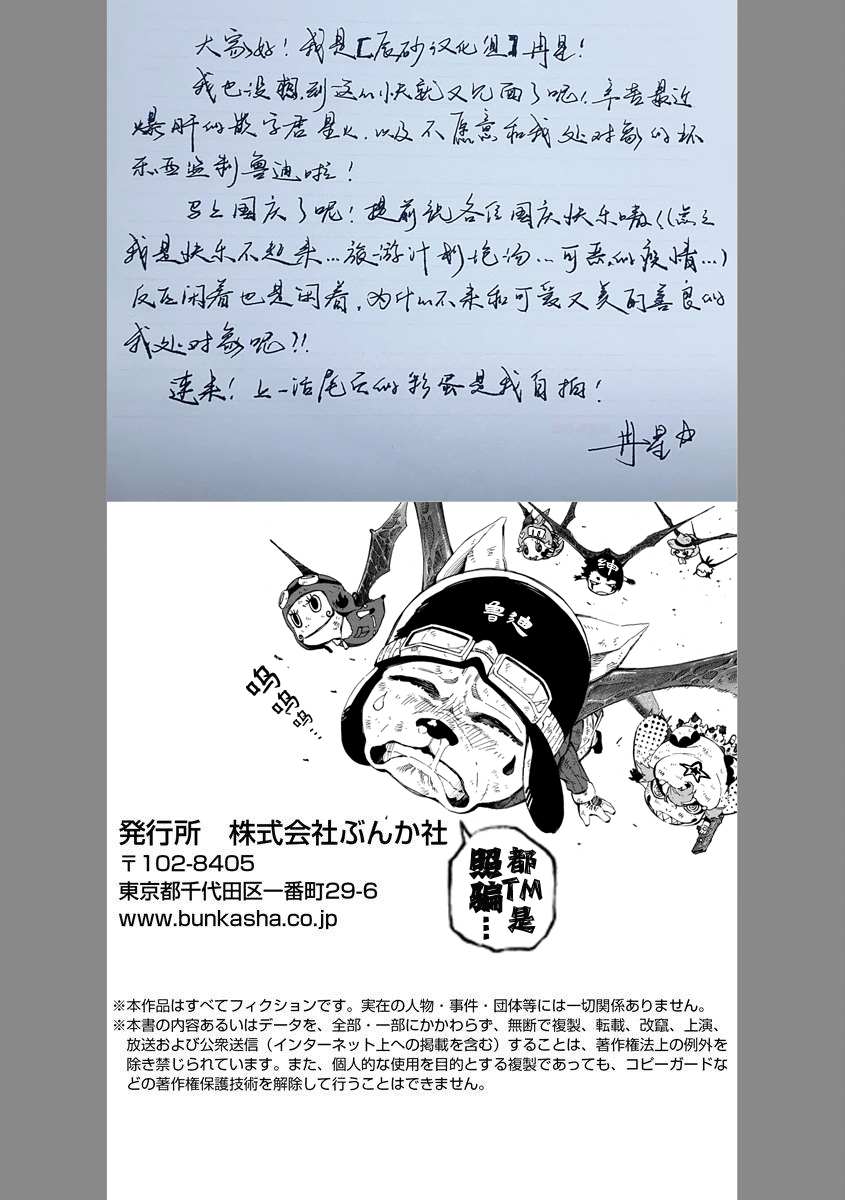 大家好！我是【辰砂汉化组】冉星！
我也没想到这么快就又见面了呢！辛苦最近
爆肝的嵌字君星火，以及不愿意和我处对象的坏
东西监制鲁迪啦！
马上国庆了呢！提前祝各位国庆快乐嗷（（总之
我是快乐不起来…旅游计划泡汤…可恶的疫情…）
反正闲着也是闲着，为什么不来和可爱又美丽善良的
我处对象呢？！
速来！上一话尾页的彩蛋是我自拍！
冉星
绅
鲁迪
呜、
呜
呜…
都TM是
照骗……
発行所　株式会社ぶんか社
〒102-8405
東京都千代田区一番町29-6
www.bunkasha.co.jp
※本作品はすべてフィクションです。実在の人物・事件・団体等には一切関係ありません。
※本書の内容あるいはデータを、全部・一部にかかわらず、無断で複製、転載、改竄、上演、
放送および公衆送信（インターネット上への掲載を含む）することは、著作権法上の例外を
除き禁じられています。また、個人的な使用を目的とする複製であっても、コピーガードな
どの著作権保護技術を解除して行うことはできません。